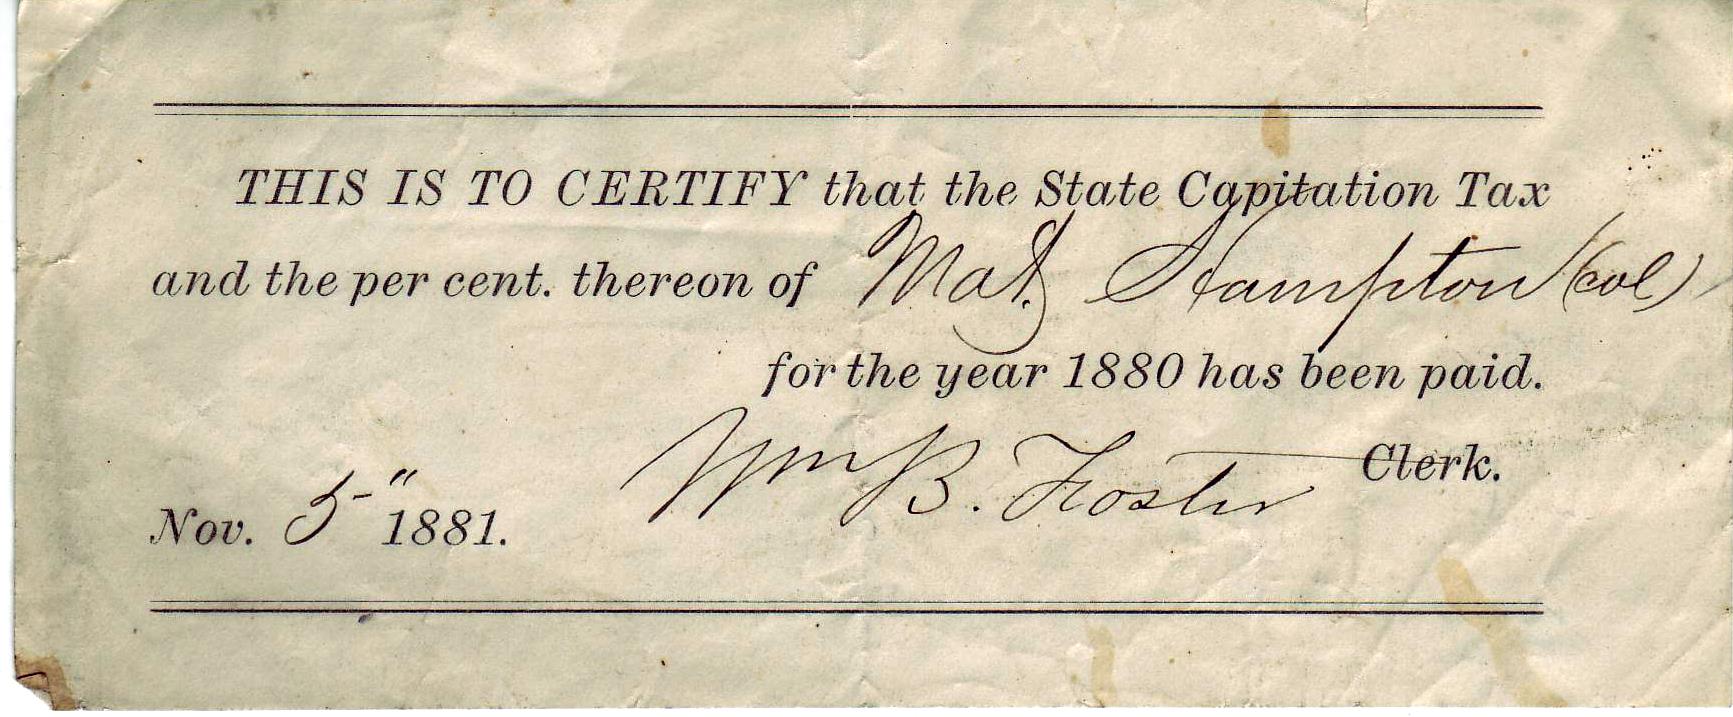 THIS IS TO CERTIFY that the State Capitation Tax
and the per cent. thereon of Maj. Hampton (col)
for the year 1880 has been paid.
Wm B. Foster Clerk.
Nov. 5" 1881.